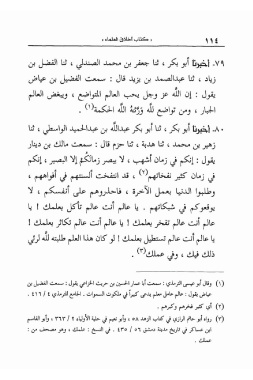 ١١٤
« كتاب أخلاق العلماء »
٧٩. أخبرنا أبو بكر ، ثنا جعفر بن محمد الصندلي ، ثنا الفضل بن
زياد ، ثنا عبدالصمد بن يزيد قال : سمعت الفضيل بن عياض
يقول : إن الله عز وجل يحب العالم المتواضع ، ويبغض العالم
الجبار ، ومن تواضع لله ورّثه الله الحكمة(١).
٨٠. أخبرنا أبو بكر ، ثنا أبو بكر عبدالله بن عبدالحميد الواسطي ، ثنا
زهير بن محمد ، ثنا هدبة ، ثنا حزم قال : سمعت مالك بن دينار
يقول : إنكم في زمان أشهب ، لا يبصر زمانكم إلا البصير ، إنكم
في زمان كثير نفخاتهم(٢) ، قد انتفخت ألسنتهم في أفواههم ،
وطلبوا الدنيا بعمل الآخرة ، فاحذروهم على أنفسكم ، لا
يوقعوكم في شبكاتهم . يا عالم أنت عالم تأكل بعلمك ! يا
عالم أنت عالم تفخر بعلمك ! يا عالم أنت عالم تكاثر بعلمك ! يا
عالم أنت عالم تستطيل بعلمك ! لو كان هذا العلم طلبته لله لرئي
ذلك فيك ، وفي عملك(٣).
(١) وقال أبو عيسى الترمذي : سمعت أبا عمار الحسين بن حريث الخزاعي يقول : سمعت الفضيل بن
عياض يقول : عالم عامل معلم يدعى كبيراً في ملكوت السموات . الجامع للترمذي ٤ / ٤١٦ .
(٢) أي كثير فخرهم وكبرهم .
(٣) رواه أبو حاتم الرازي في كتاب الزهد ٥٥ ، وأبو نعيم في حلية الأولياء ٢ / ٣٦٣ ، وأبو القاسم
ابن عساكر في تاريخ مدينة دمشق ٥٦ / ٤٣٥ . في النسخة : علمك ، وهو مصحف من :
عملك .